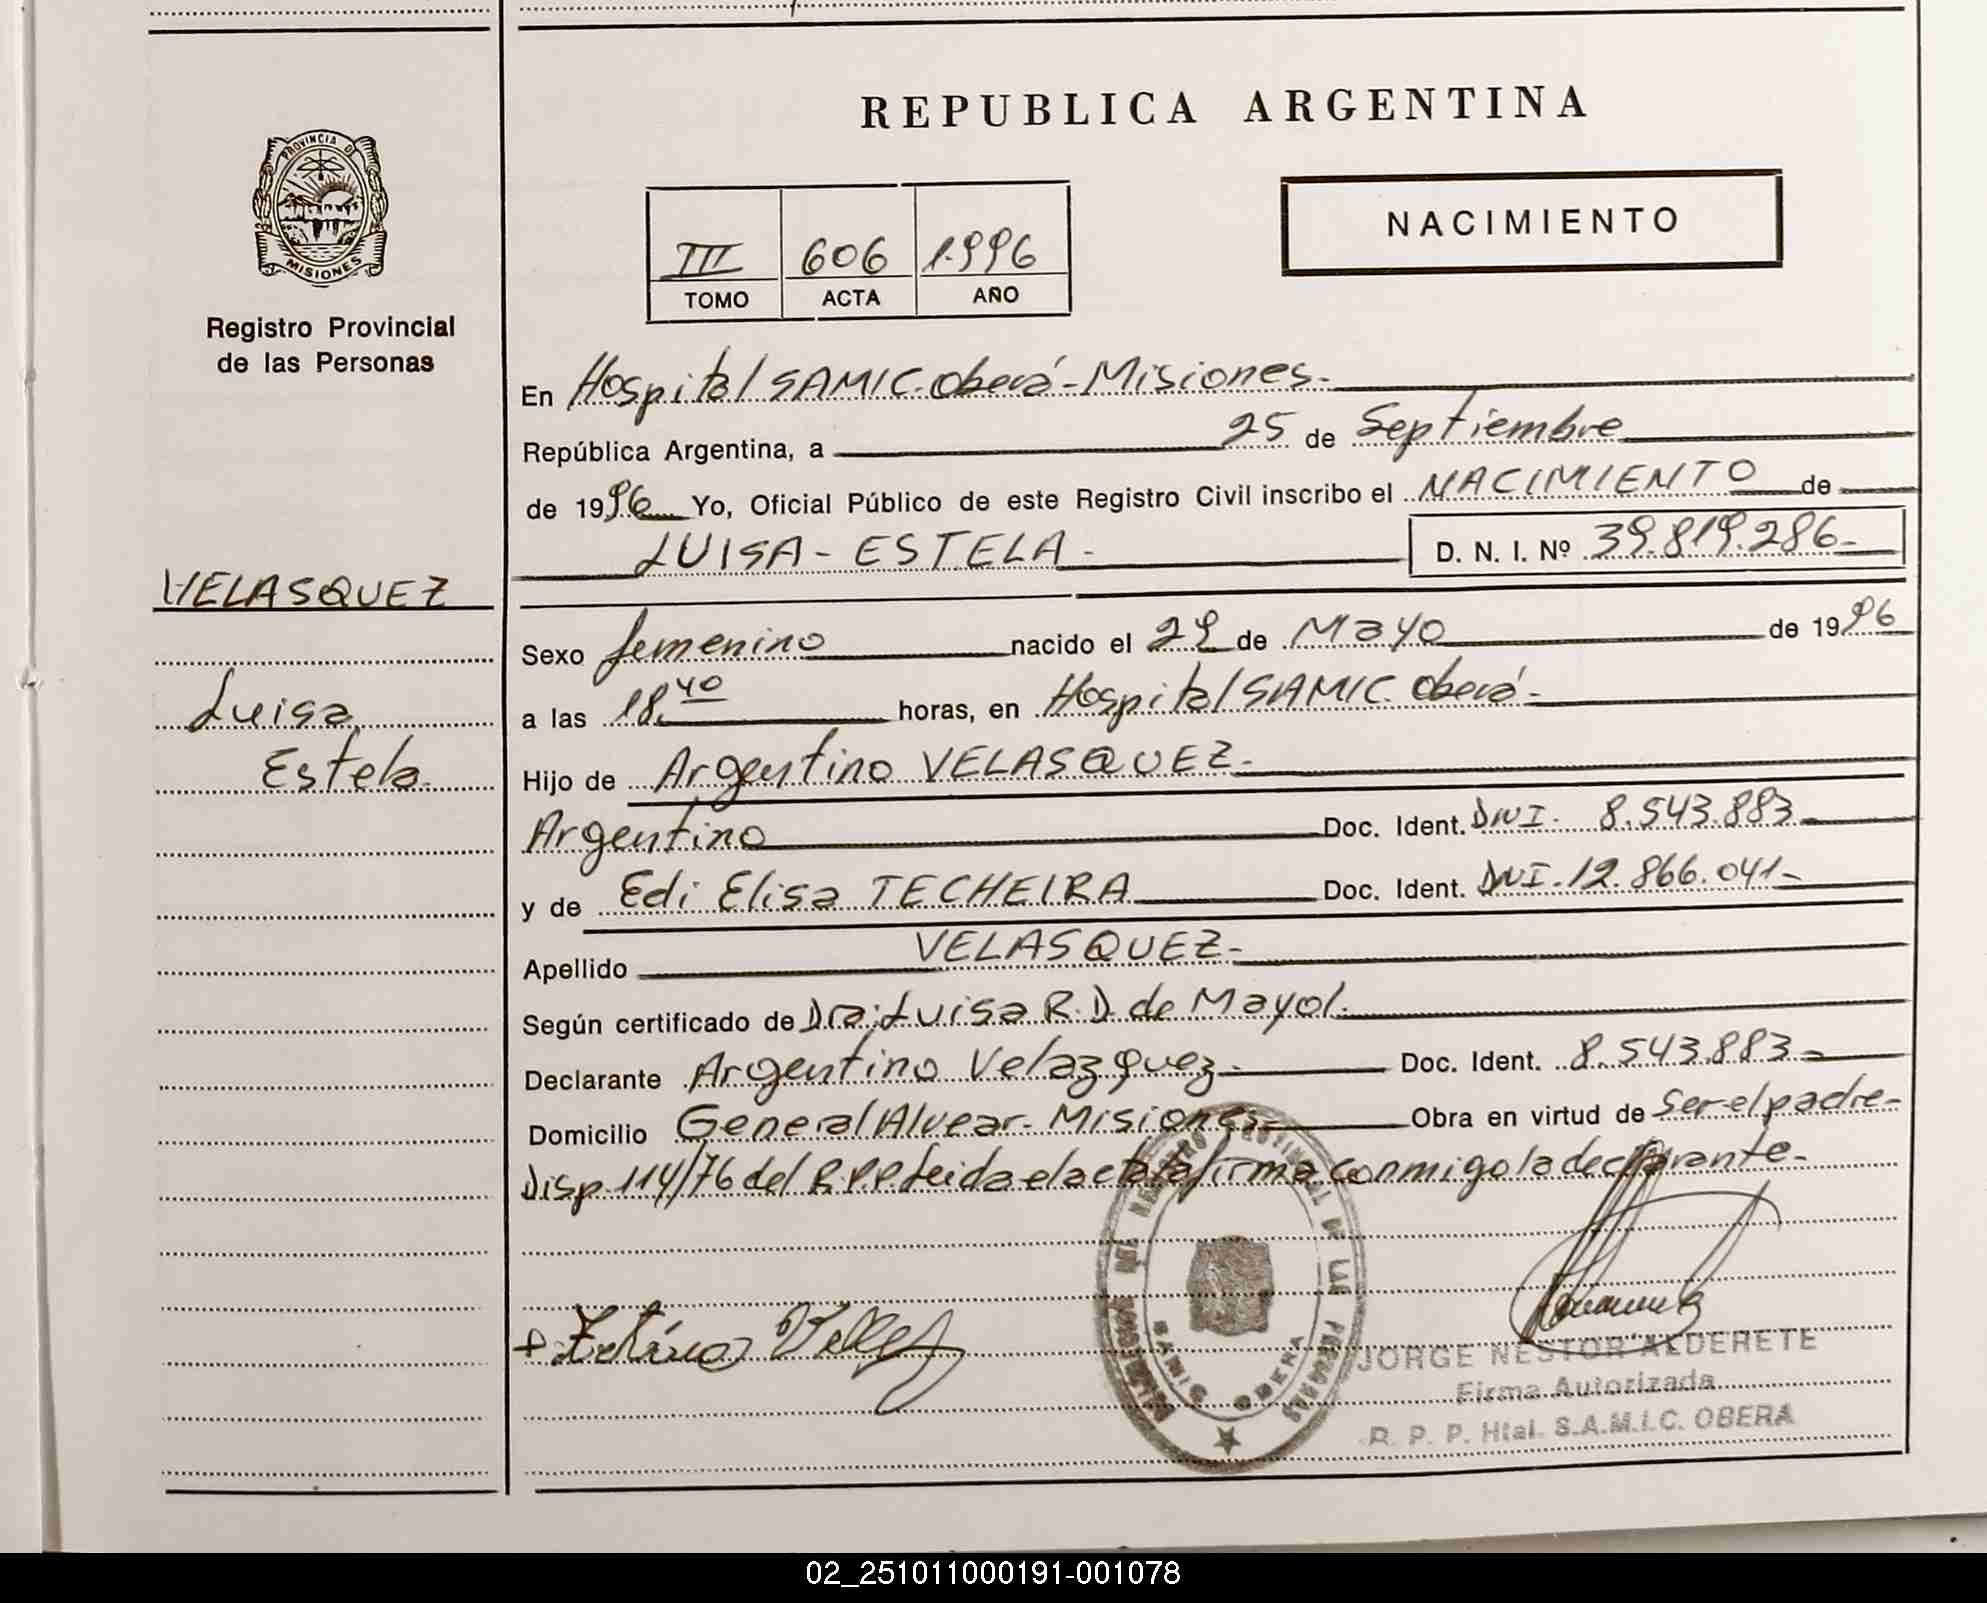 REPUBLICA ARGENTINA
PROVINCIA DE
MISIONES
Registro Provincial
de las Personas
III 606 1.996
TOMO ACTA AÑO
NACIMIENTO
En Hospital SAMIC. Oberá - Misiones.-
República Argentina, a 25 de Septiembre
de 1996 Yo, Oficial Público de este Registro Civil inscribo el NACIMIENTO de
LUISA - ESTELA - D. N. I. Nº 39.819.286-
VELASQUEZ
Luisa
Estela.
Sexo femenino nacido el 29 de Mayo de 1996
a las 18.40 horas, en Hospital SAMIC. Oberá -
Hijo de Argentino VELASQUEZ.-
Argentino Doc. Ident. DNI. 8.543.883-
y de Edi Elisa TECHEIRA Doc. Ident. DNI. 12.866.041-
Apellido VELASQUEZ-
Según certificado de Dra: Luisa R. D. de Mayol.
Declarante Argentino Velazquez- Doc. Ident. 8.543.883-
Domicilio General Alvear - Misiones- Obra en virtud de ser el padre-
Disp. 114/76 del R.P.P. Leida el acta la firma conmigo la declarante-
SAMIC OBERA
JORGE NESTOR ALDERETE
Firma Autorizada
R. P. P. Htal. S.A.M.I.C. OBERA
02_251011000191-001078